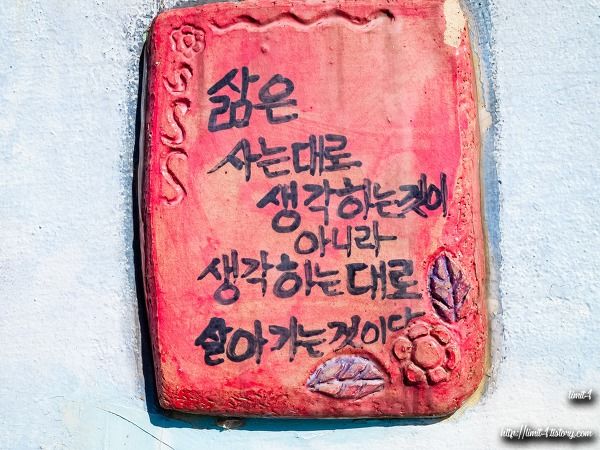 삶은
사는대로
생각하는것이
아니라
생각하는대로
살아가는것이다
limit-4
http://limit-4.tistory.com